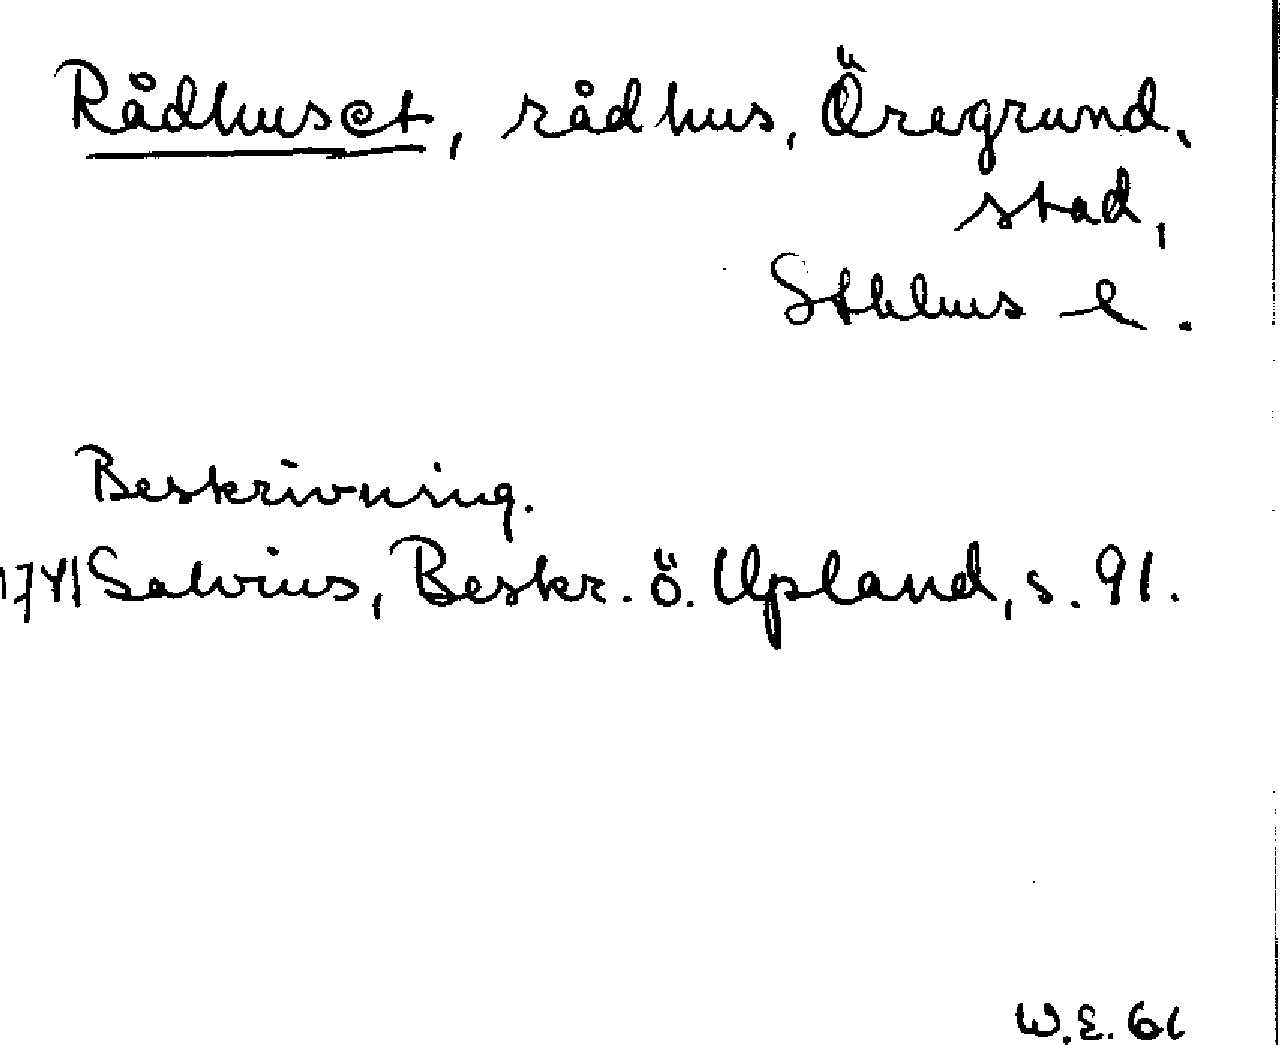 Rådhuset, rådhus, Öregrund,
stad,
Sthlms l.
Beskrivning.
1741 Salvius, Beskr. ö. Upland, s. 91.
W.E. 61